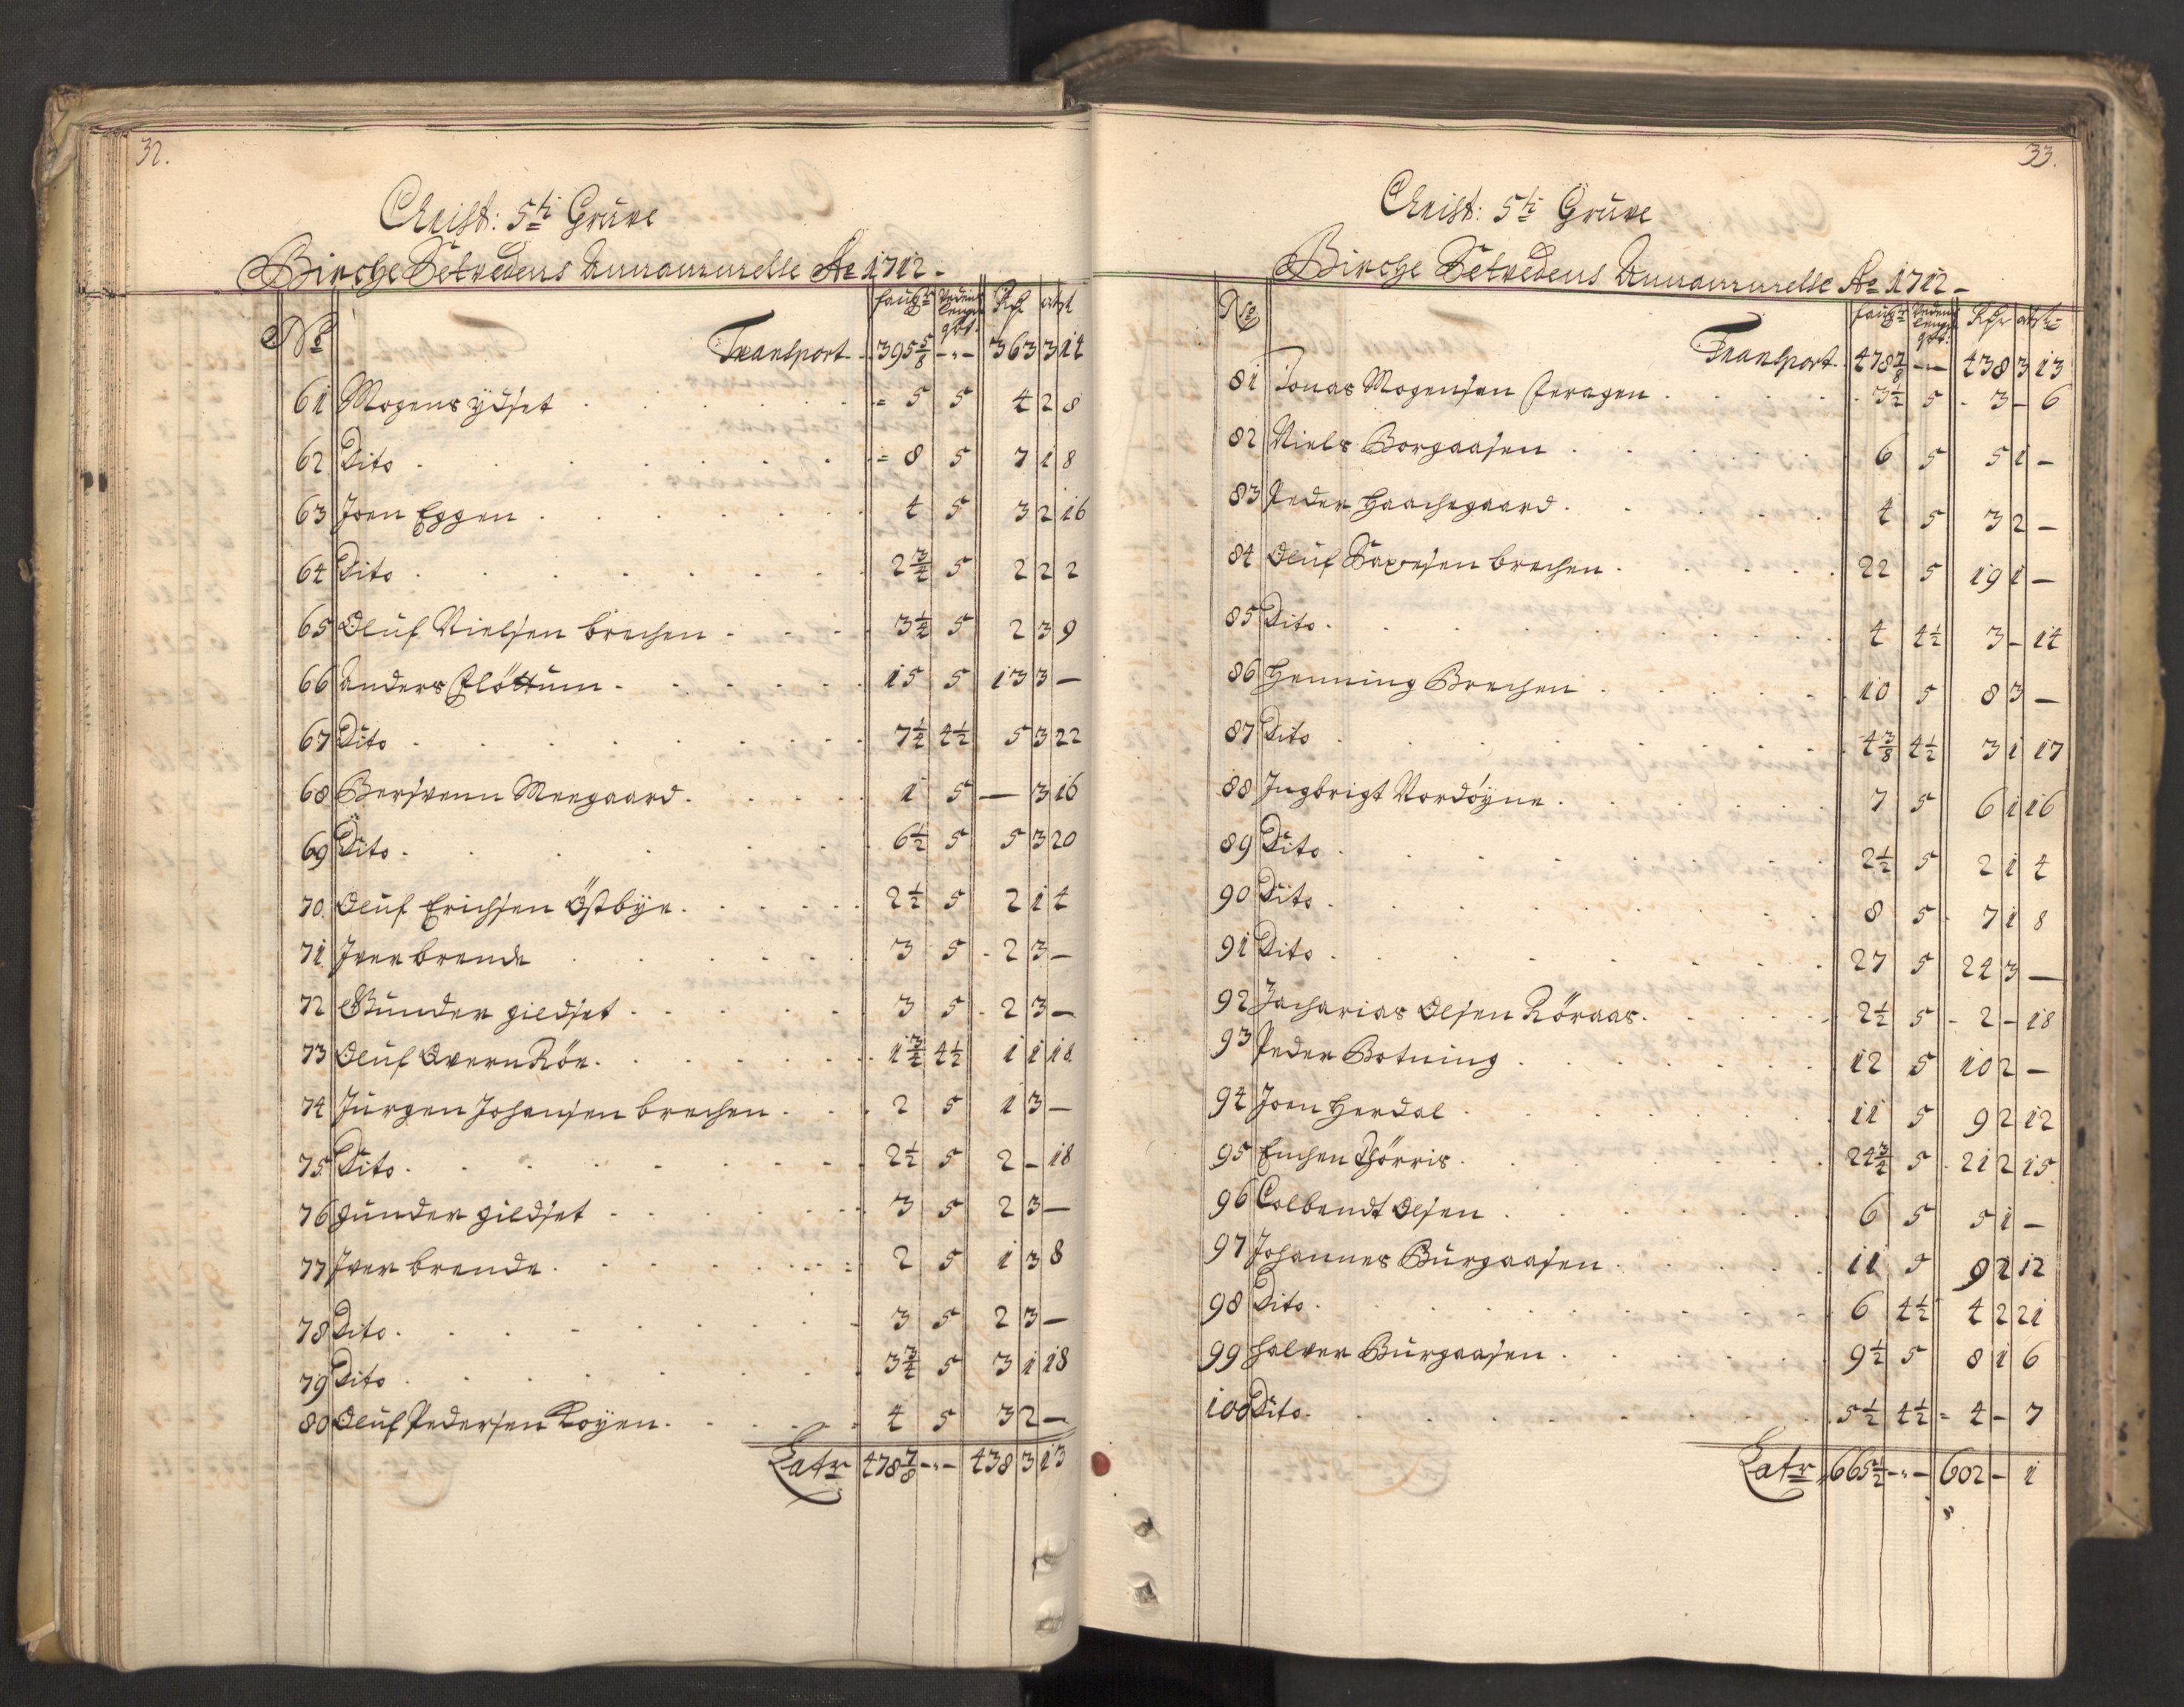 32.
Christ: 5ti Grüve
Birche Setvedens Annammelse Ao 1712.
No Faug: Vedens lengde qrt: Rdr ort s
Transport 395 5/8 -"- 363 3 14
61 Mogens ydset 5 5 4 2 8
62 Dito 8 5 7 1 8
63 Joen Eggen 4 5 3 2 16
64 Dito 2 3/4 5 2 2 2
65 Oluf Nielsen brechen 3 1/4 5 2 3 9
66 Anders Flöttum 15 5 13 3 —
67 Dito 7 1/4 4 1/2 5 3 22
68 Bersvenn Meegaard 1 5 — 3 16
69 Dito 6 1/2 5 5 3 20
70 Oluf Erichsen Östbÿe 2 1/2 5 2 1 4
71 Iver brende 3 5 2 3 —
72 Gunder gildset 3 5 2 3 —
73 Oluf Qvern Röe 1 3/4 4 1/2 1 1 18
74 Jürgen Johansen brechen 2 5 1 3 —
75 Dito 2 1/2 5 2 — 18
76 gunder gildset 3 5 2 3 —
77 Iver brende 2 5 1 3 8
78 Dito 3 5 2 3 —
79 Dito 3 3/4 5 3 1 18
80 Oluf Pedersen Koyen 4 5 3 2 —
Latr 478 7/8 -"- 438 3 13
33.
Christ: 5ti Grüve
Birche Setvedens Annammelse Ao 1712.
No Faug: Vedens lengde qrt: Rdr ort s
Transport 478 7/8 -"- 438 3 13
81 Jonas Mogensen Feragen 3 1/2 5 3 — 6
82 Niels Borgaasen 6 5 5 1 —
83 Peder Haachegaard 4 5 3 2 —
84 Oluf Saxesen brechen 22 5 19 1 —
85 Dito 4 4 1/2 3 — 14
86 Henning Brechen 10 5 8 3 —
87 Dito 4 3/8 4 1/2 3 1 17
88 Ingbrigt Nordöyne 7 5 6 1 16
89 Dito 2 1/2 5 2 1 4
90 Dito 8 5 7 1 8
91 Dito 27 5 24 3 —
92 Zacharias Olsen Röraas 2 1/2 5 2 — 18
93 Peder Botning 12 5 10 2 —
94 Joen Herdal 11 5 9 2 12
95 Enchen Thörris 24 3/4 5 21 2 15
96 Colbendt Olsen 6 5 5 1 —
97 Johannes Bürgaasen 11 5 9 2 12
98 Dito 6 4 1/2 4 2 21
99 Halver Bürgaasen 9 1/2 5 8 1 6
100 Dito 5 1/2 4 1/2 4 — 7
Latr 665 1/2 -"- 602 — 1